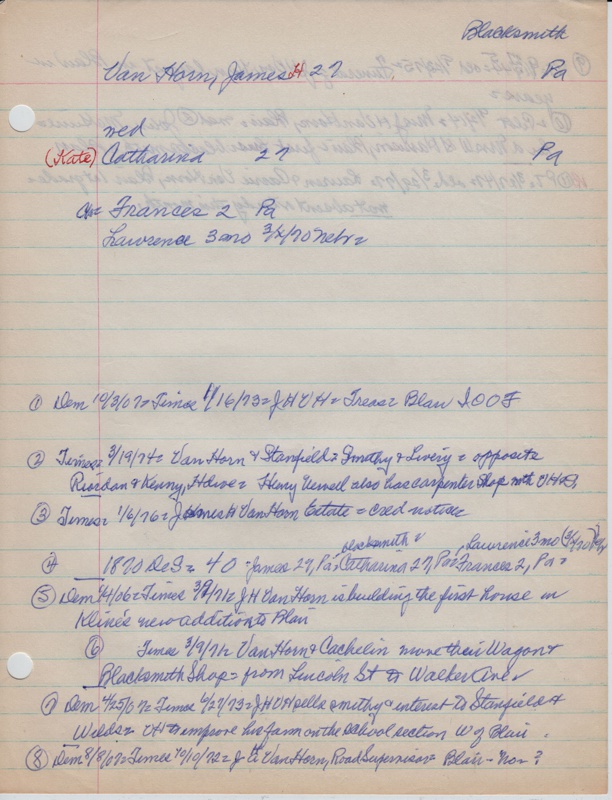 Blacksmith
Van Horn, James H 27 Pa
wed
(Kate) Catharina 27 Pa
Ch= Frances 2 Pa
Lawrence 3 mo 3/2/70 Nebr=
① Dem 10/3/07= Times 1/16/73= J H V H= Treas= Blair I.O.O.F
② Times= 3/19/74= Van Horn & Stanfield= Smithy & Livery= opposite
Riordan & Kenny, Hdwe= Henry also has carpenter shop with VH & S,
③ Times= 1/6/76= James H Van Horn Estate= cred notice
blacksmith= , Lawrence 3 mo
④ 1870 De S= 40= James 27, Pa= Catharina 27, Pa= Frances 2, Pa=
⑤ Dem /06= Times 3/ /71= J H Van Horn is building the first house in
Kline's new addition to Blair
⑥ Times 3/9/71= Van Horn & Cachelin move their Wagon &
Blacksmith Shop= from Lincoln St to Walker Ave=
⑦ Dem 4/25/07= Times 4/27/73= J H V H sells smithy interest to Stanfield &
Wilds= VH to improve his farm on the school section W of Blair.
⑧ Dem 8/8/07= Times 10/10/72= J H Van Horn, Road Supervisor= Blair - Non?